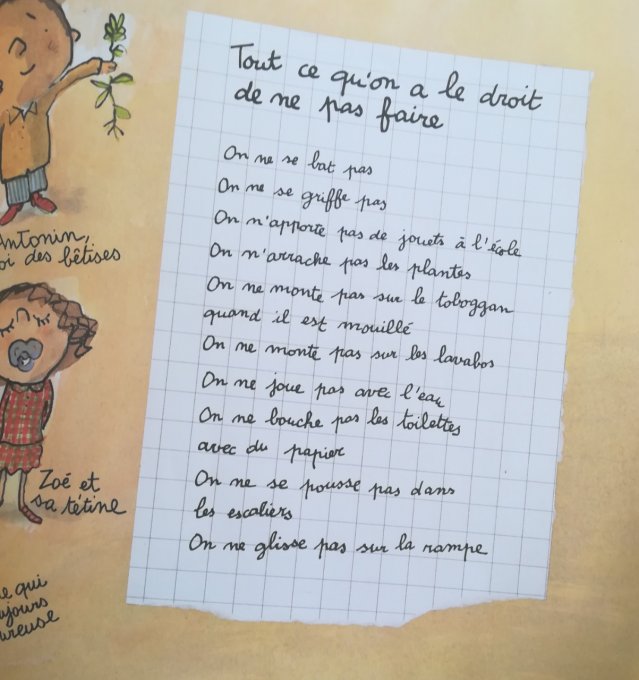 Tout ce qu'on a le droit
de ne pas faire
On ne se bat pas
On ne se griffe pas
On n'apporte pas de jouets à l'école
On n'arrache pas les plantes
On ne monte pas sur le toboggan
quand il est mouillé
On ne monte pas sur les lavabos
On ne joue pas avec l'eau
On ne bouche pas les toilettes
avec du papier
On ne se pousse pas dans
les escaliers
On ne glisse pas sur la rampe
Antonin,
des bêtises
Zoé et
sa tétine
qui